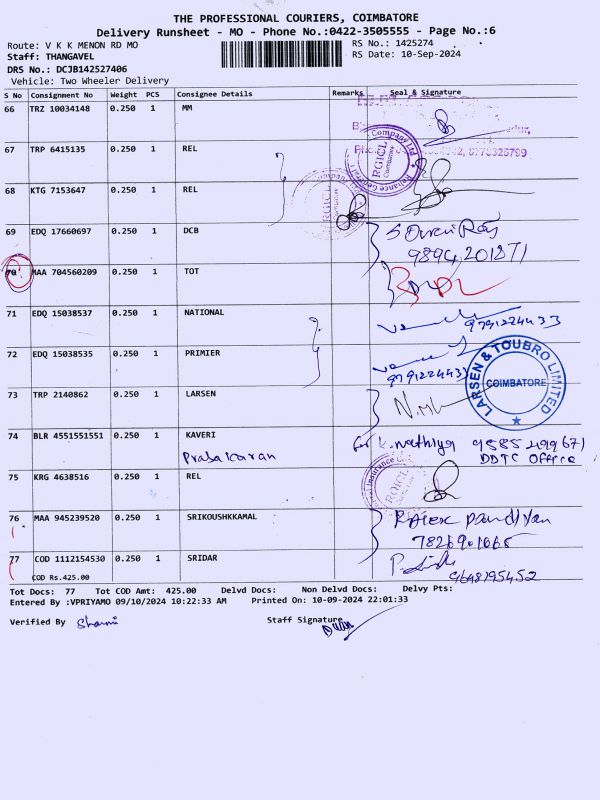 THE PROFESSIONAL COURIERS, COIMBATORE
Delivery Runsheet - MO - Phone No.:0422-3505555 - Page No.:6
Route: V K K MENON RD MO
RS No.: 1425274
Staff: THANGAVEL
RS Date: 10-Sep-2024
DRS No.: DCJB142527406
Vehicle: Two Wheeler Delivery
S No Consignment No Weight PCS Consignee Details Remarks Seal & Signature
66 TRZ 10034148 0.250 1 MM
67 TRP 6415135 0.250 1 REL
RGICL
Coimbatore
68 KTG 7153647 0.250 1 REL
69 EDQ 17660697 0.250 1 DCB
70 MAA 704560209 0.250 1 TOT
71 EDQ 15038537 0.250 1 NATIONAL
9791224433
72 EDQ 15038535 0.250 1 PRIMIER
LARSEN & TOUBRO LIMITED
COIMBATORE
73 TRP 2140862 0.250 1 LARSEN
74 BLR 4551551551 0.250 1 KAVERI
Prabakaran
DDTC Office
75 KRG 4638516 0.250 1 REL
RGICL
76 MAA 945239520 0.250 1 SRIKOUSHKKAMAL
77 COD 1112154530 0.250 1 SRIDAR
COD Rs.425.00
Tot Docs: 77 Tot COD Amt: 425.00 Delvd Docs: Non Delvd Docs: Delvy Pts:
Entered By :VPRIYAMO 09/10/2024 10:22:33 AM Printed On: 10-09-2024 22:01:33
Verified By
Staff Signature